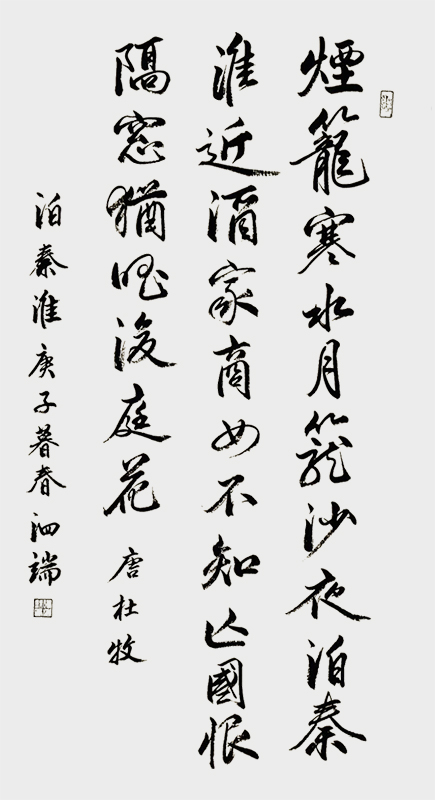 煙籠寒水月籠沙夜泊秦
淮近酒家商女不知亡國恨
隔窓猶唱後庭花 唐杜牧
泊秦淮庚子暮春泗端